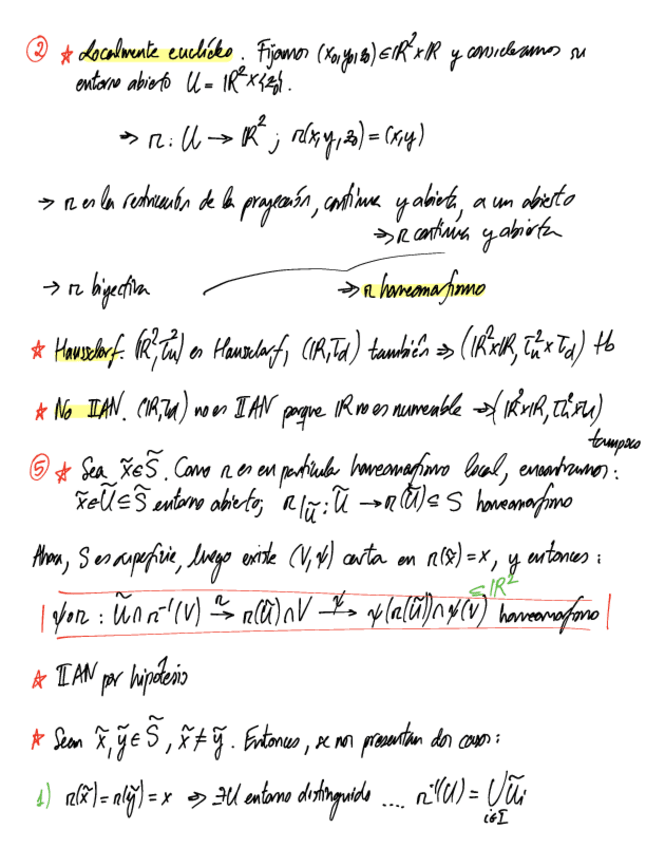 ② ☆ Localmente euclídeo. Fijamos (x₀,y₀,z₀) ∈ ℝ²×ℝ y consideramos su
entorno abierto U = ℝ²×{z₀}.
⇒ π: U → ℝ²; π(x,y,z₀) = (x,y)
→ π es la restricción de la proyección, continua y abierta, a un abierto
⇒ π continua y abierta
→ π biyectiva ⇒ π homeomorfismo
☆ Haussdorf. (ℝ²,τᵤ²) es Hausdorf, (ℝ,τd) también ⇒ (ℝ²×ℝ, τᵤ²×τd) Hb
☆ No IIAN. (ℝ,τd) no es IIAN porque ℝ no es numerable → (ℝ²×ℝ, τᵤ²×τd)
tampoco
⑤ ☆ Sea x̃∈S̃. Como π es en particular homeomorfismo local, encontramos:
x̃∈Ũ⊆S̃ entorno abierto; π|Ũ: Ũ → π(Ũ) ⊆ S homeomorfismo
Ahora, S es superficie, luego existe (V,ψ) carta en π(x̃)=x, y entonces:
⊆ℝ²
ψ∘π : Ũ∩π⁻¹(V) →π π(Ũ)∩V →ψ ψ(π(Ũ))∩ψ(V) homeomorfismo
☆ IIAN por hipótesis
☆ Sean x̃,ỹ∈S̃, x̃≠ỹ. Entonces, se nos presentan dos casos:
1) π(x̃)=π(ỹ)=x ⇒ ∃U entorno distinguido .... π⁻¹(U) = ⋃Ũᵢ
i∈I